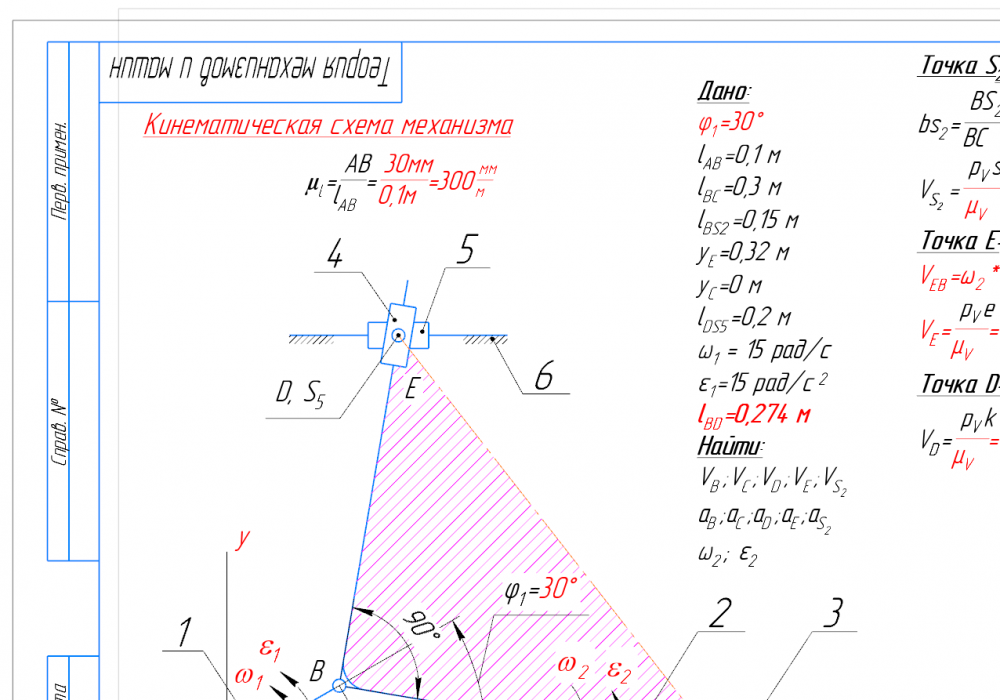 Теория механизмов и машин
Перв. примен.
Справ. №
Кинематическая схема механизма
μl=AB/lAB=30мм/0,1м=300 мм/м
4
5
6
D, S5
E
y
φ1=30°
90°
1
2
3
ε1
ω1
B
ω2
ε2
Дано:
φ1=30°
lAB=0,1 м
lBC=0,3 м
lBS2=0,15 м
yE=0,32 м
yC=0 м
lDS5=0,2 м
ω1 = 15 рад/с
ε1=15 рад/с²
lBD=0,274 м
Найти:
VB; VC; VD; VE; VS2
aB; aC; aD; aE; aS2
ω2; ε2
Точка S2
bs2=BS2/BC
VS2=pVs/μV
Точка E
VEB=ω2*
VE=pVe/μV=
Точка D
VD=pVk/μV=